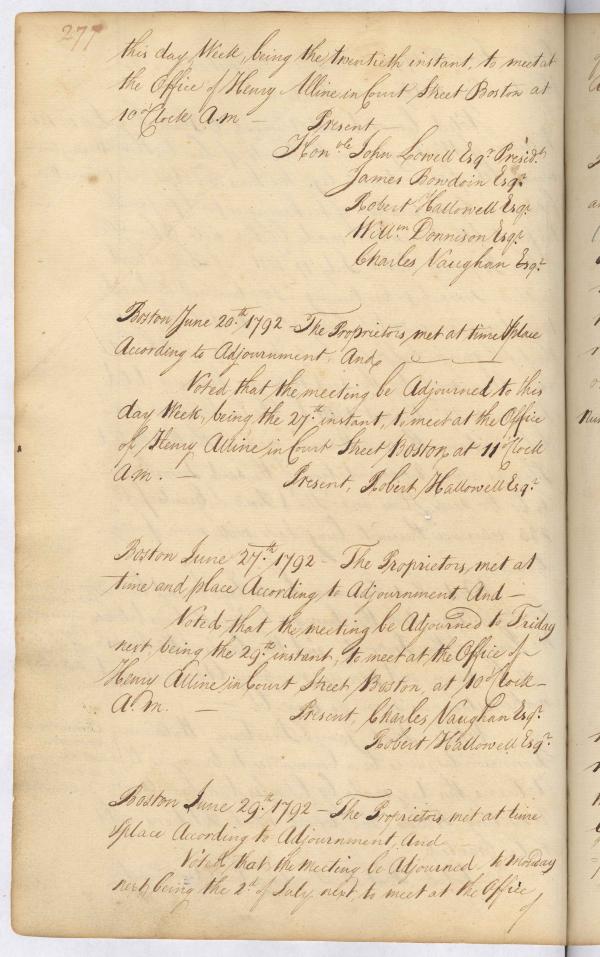 277
this day Week, being the twentieth instant, to meet at
the Office of Henry Alline in Court Street Boston at
10 o'Clock A.M —
Present
Honble John Lowell Esqr Presidt
James Bowdoin Esqr
Robert Hallowell Esqr
Willm Donnison Esqr
Charles Vaughan Esqr
Boston June 20th 1792 – The Proprietors, met at time & place
According to Adjournment, And,
Voted that the meeting be Adjourned to this
day Week, being the 27th instant, to meet at the Office
of Henry Alline in Court Street Boston at 11 o'Clock
A.M. — Present, Robert Hallowell Esqr
Boston June 27th 1792 – The Proprietors, met at
time and place According to Adjournment And –
Voted that the meeting be Adjourned to Friday
next, being the 29th instant, to meet at the Office of
Henry Alline in Court Street Boston, at 10 o'Clock –
A.M. — Present, Charles Vaughan Esqr
Robert Hallowell Esqr
Boston June 29th 1792 – The Proprietors met at time
& place According to Adjournment, And
Voted that the meeting be Adjourned to Monday
next, being the 2d of July next, to meet at the Office
of